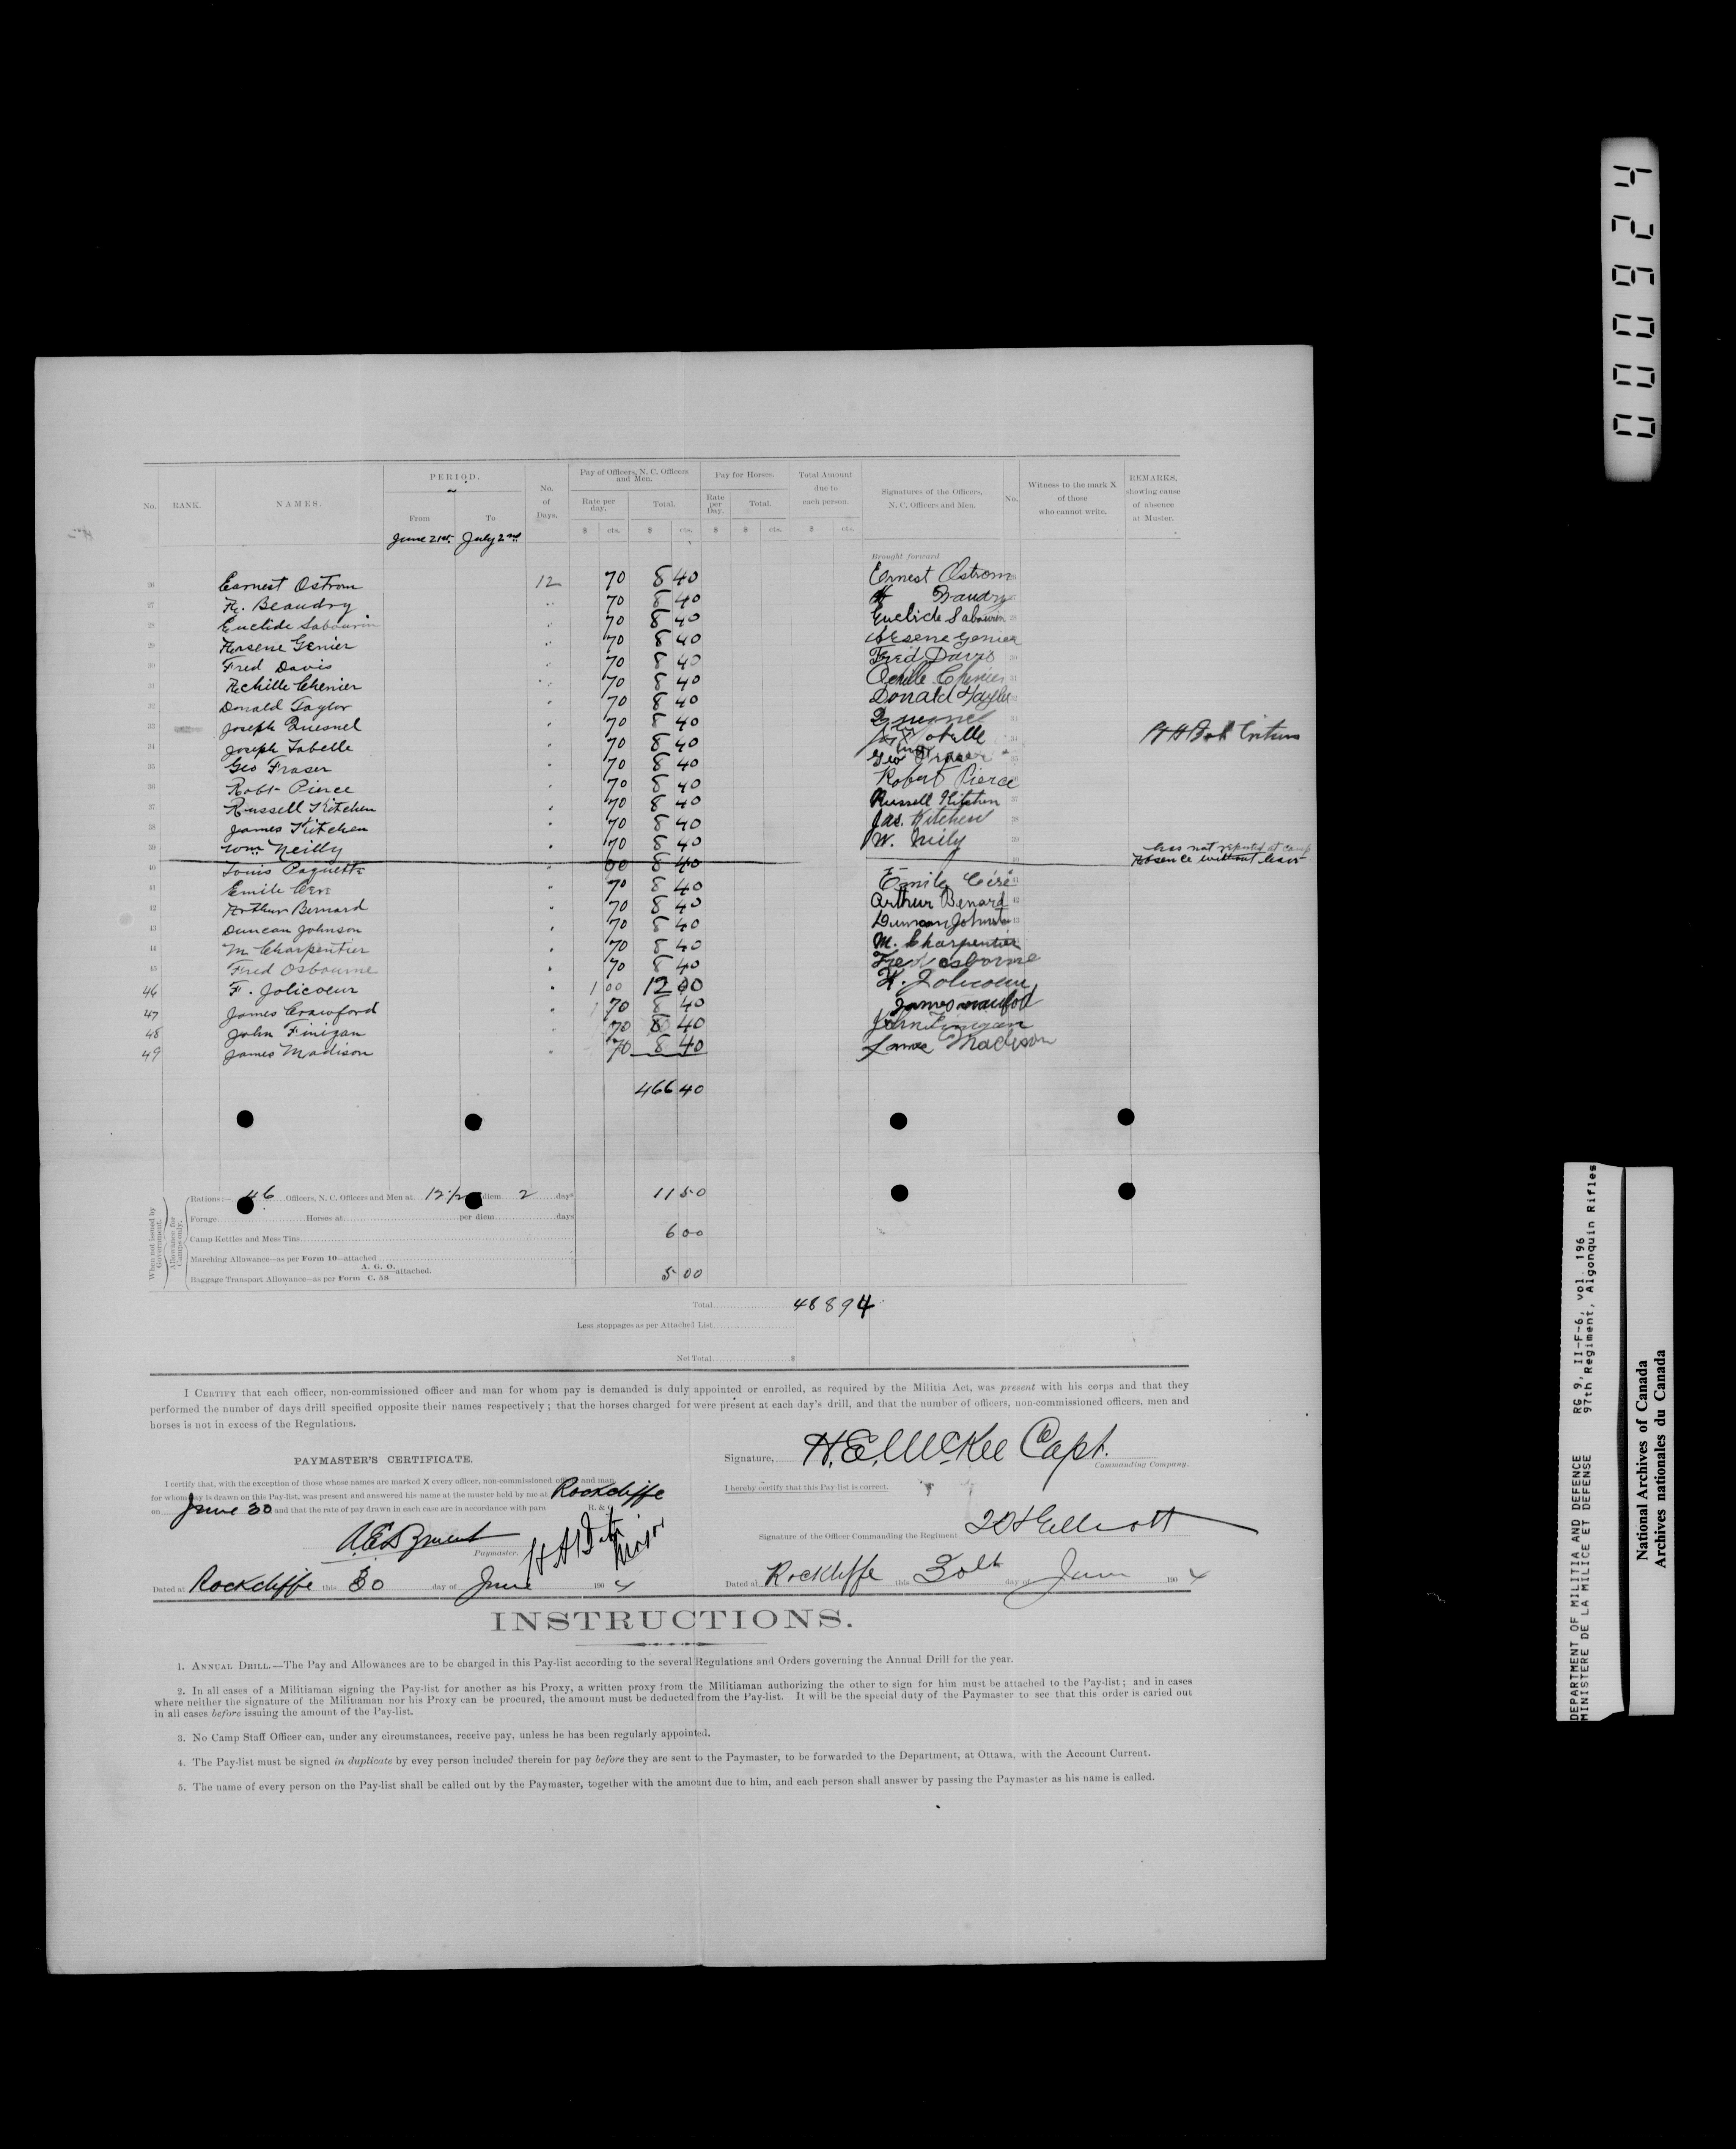 No. RANK. NAMES. PERIOD. From To No. of Days. Pay of Officers, N. C. Officers and Men. Rate per day. Total. Pay for Horses. Rate per Day. Total. Total Amount due to each person. Signatures of the Officers, N. C. Officers and Men. No. Witness to the mark X of those who cannot write. REMARKS, showing cause of absence at Muster.
$ cts. $ cts. $ $ cts. $ cts.
June 21st July 2nd
Brought forward
26 Earnest Ostrom 12 70 8 40 Ernest Ostrom
27 A. Beaudry " 70 8 40 Baudry
28 Euclide Sabourin " 70 8 40 Euclide Sabourin 28
29 Arsene Genier " 70 8 40 Arsene Genier
30 Fred Davis " 70 8 40 Fred Davis 30
31 Achille Chenier " 70 8 40 Achille Chenier 31
32 Donald Taylor " 70 8 40 Donald Taylor 32
33 Joseph Quesnel " 70 8 40
34 Joseph Labelle " 70 8 40 X 34
35 Geo Fraser " 70 8 40 Geo Fraser 35
36 Robt Pierce " 70 8 40 Robert Pierce
37 Russell Kitchen " 70 8 40 Russell Kitchen 37
38 James Kitchen " 70 8 40 Jas. Kitchen 38
39 Wm Neilly " 70 8 40 W. Neily 39
has not reported at camp
40 Louis Paquette " 8 40 40 Absence without leave
41 Emile Cere " 70 8 40 Emile Céré 41
42 Arthur Bernard " 70 8 40 Arthur Benard 42
43 Duncan Johnson " 70 8 40 Duncan Johnston 43
44 M Charpentier " 70 8 40 M. Charpentier
45 Fred Osbourne " 70 8 40 Fred osborne
46 F. Jolicoeur " 1 00 12 00 Jolicoeur
47 James Crawford " 70 8 40 James
48 John Finigan " 70 8 40 John Finigan
49 James Madison " 70 8 40 James Madison
466 40
When not issued by Government.
Allowance for Camps only.
Rations:— 46 Officers, N. C. Officers and Men at 12½ per diem 2 days 11 50
Forage Horses at per diem days
Camp Kettles and Mess Tins 6 00
Marching Allowance—as per Form 10—attached
Baggage Transport Allowance—as per Form A. G. O. C. 58 attached. 5 00
Total 488 94
Less stoppages as per Attached List
Net Total $
I CERTIFY that each officer, non-commissioned officer and man for whom pay is demanded is duly appointed or enrolled, as required by the Militia Act, was present with his corps and that they
performed the number of days drill specified opposite their names respectively; that the horses charged for were present at each day's drill, and that the number of officers, non-commissioned officers, men and
horses is not in excess of the Regulations.
PAYMASTER'S CERTIFICATE.
I certify that, with the exception of those whose names are marked X every officer, non-commissioned officer and man
for whom pay is drawn on this Pay-list, was present and answered his name at the muster held by me at Rockcliffe
on June 30 and that the rate of pay drawn in each case are in accordance with para R. & O.
Paymaster.
Major
Dated at Rockcliffe this 30 day of June 190 4
Signature, H. E. McKee Capt.
Commanding Company.
I hereby certify that this Pay-list is correct.
Signature of the Officer Commanding the Regiment
Dated at Rockliffe this 30th day of June 190 4
INSTRUCTIONS.
1. ANNUAL DRILL.—The Pay and Allowances are to be charged in this Pay-list according to the several Regulations and Orders governing the Annual Drill for the year.
2. In all cases of a Militiaman signing the Pay-list for another as his Proxy, a written proxy from the Militiaman authorizing the other to sign for him must be attached to the Pay-list; and in cases
where neither the signature of the Militiaman nor his Proxy can be procured, the amount must be deducted from the Pay-list. It will be the special duty of the Paymaster to see that this order is caried out
in all cases before issuing the amount of the Pay-list.
3. No Camp Staff Officer can, under any circumstances, receive pay, unless he has been regularly appointed.
4. The Pay-list must be signed in duplicate by evey person included therein for pay before they are sent to the Paymaster, to be forwarded to the Department, at Ottawa, with the Account Current.
5. The name of every person on the Pay-list shall be called out by the Paymaster, together with the amount due to him, and each person shall answer by passing the Paymaster as his name is called.
DEPARTMENT OF MILITIA AND DEFENCE RG 9, II-F-6, vol. 196
MINISTERE DE LA MILICE ET DEFENSE 97th Regiment, Algonquin Rifles
National Archives of Canada
Archives nationales du Canada